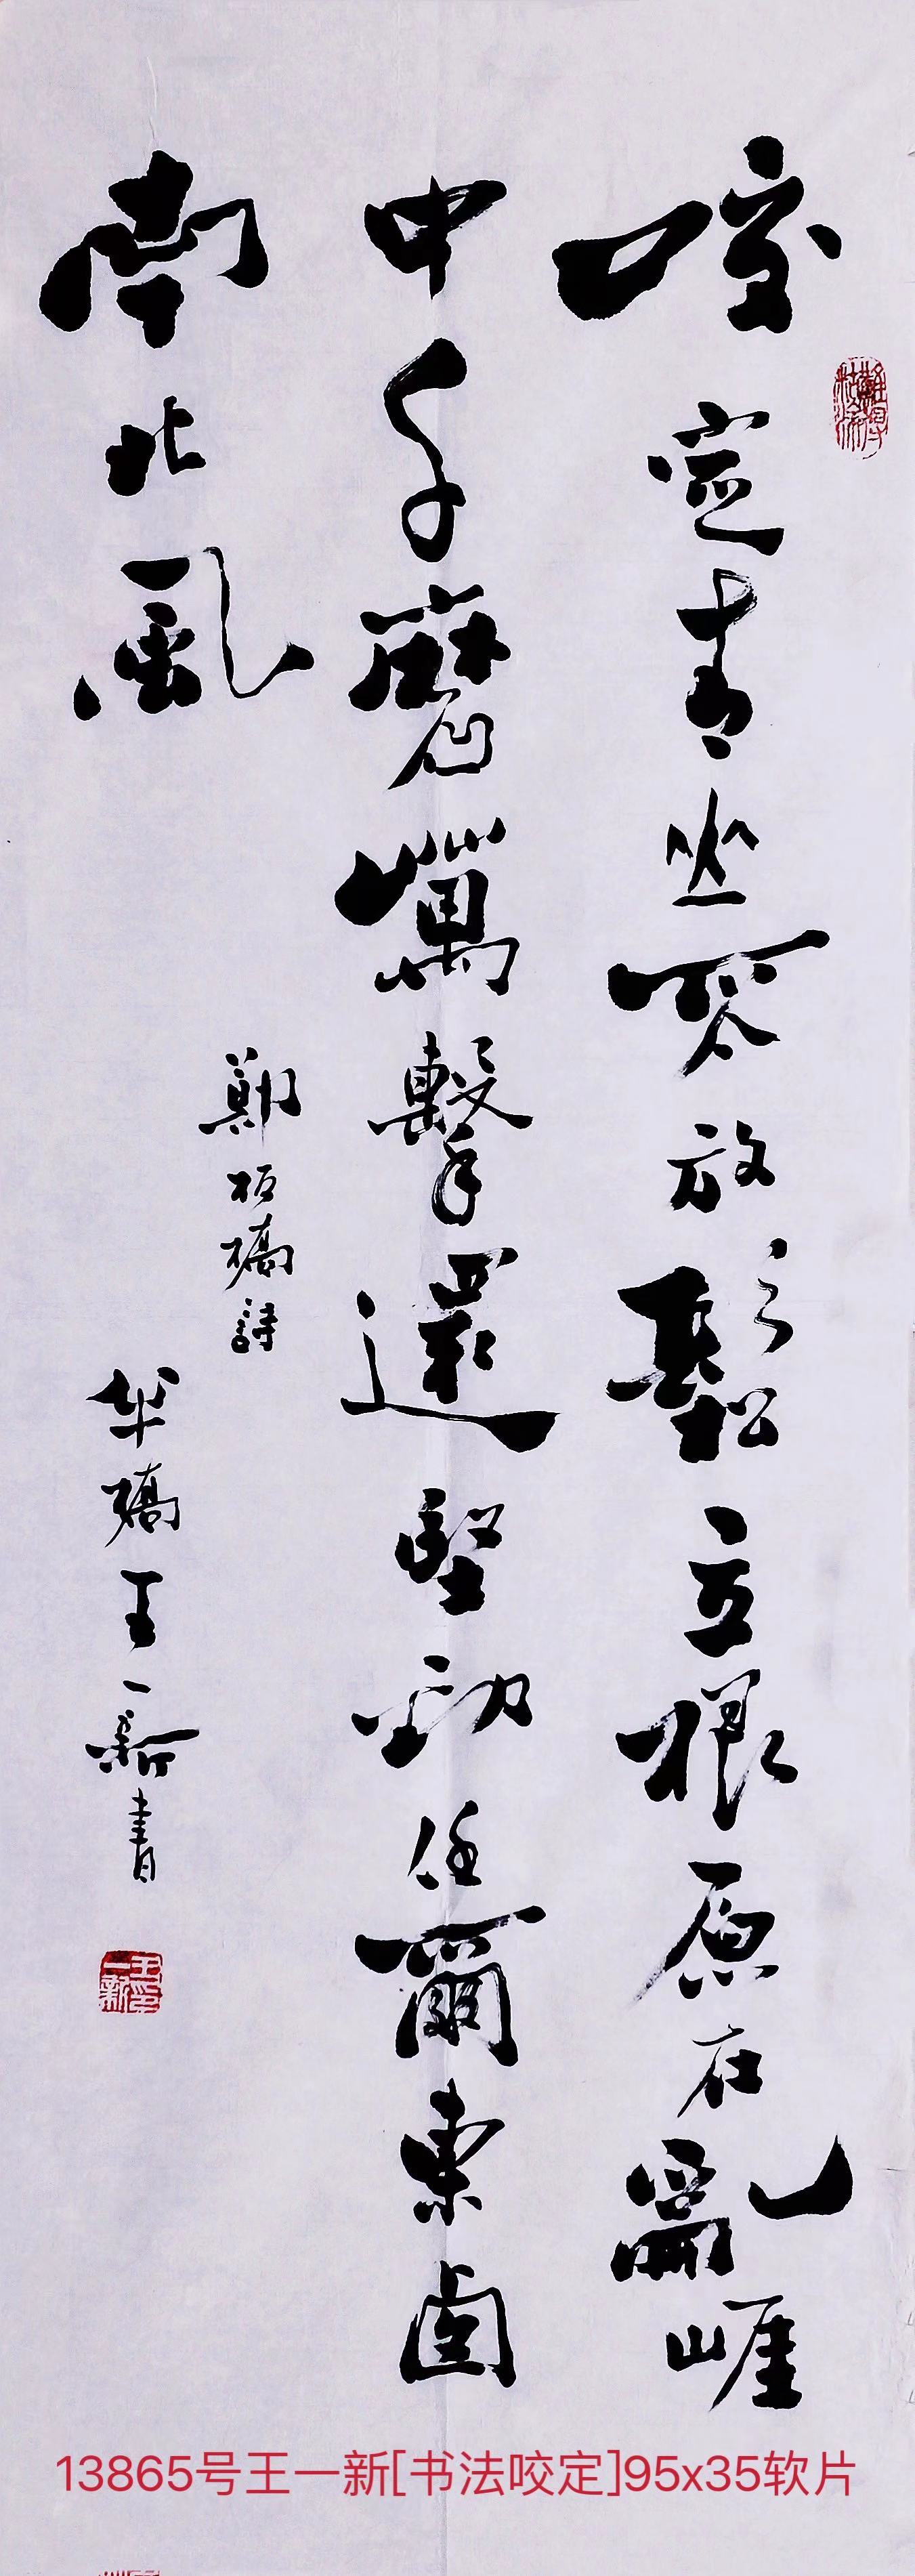 咬定青山不放鬆立根原在亂崖
中千磨萬擊還堅勁任爾東西
南北風
鄭板橋詩
橋王一新書
難得糊塗
王一新印
13865号王一新[书法咬定]95x35软片